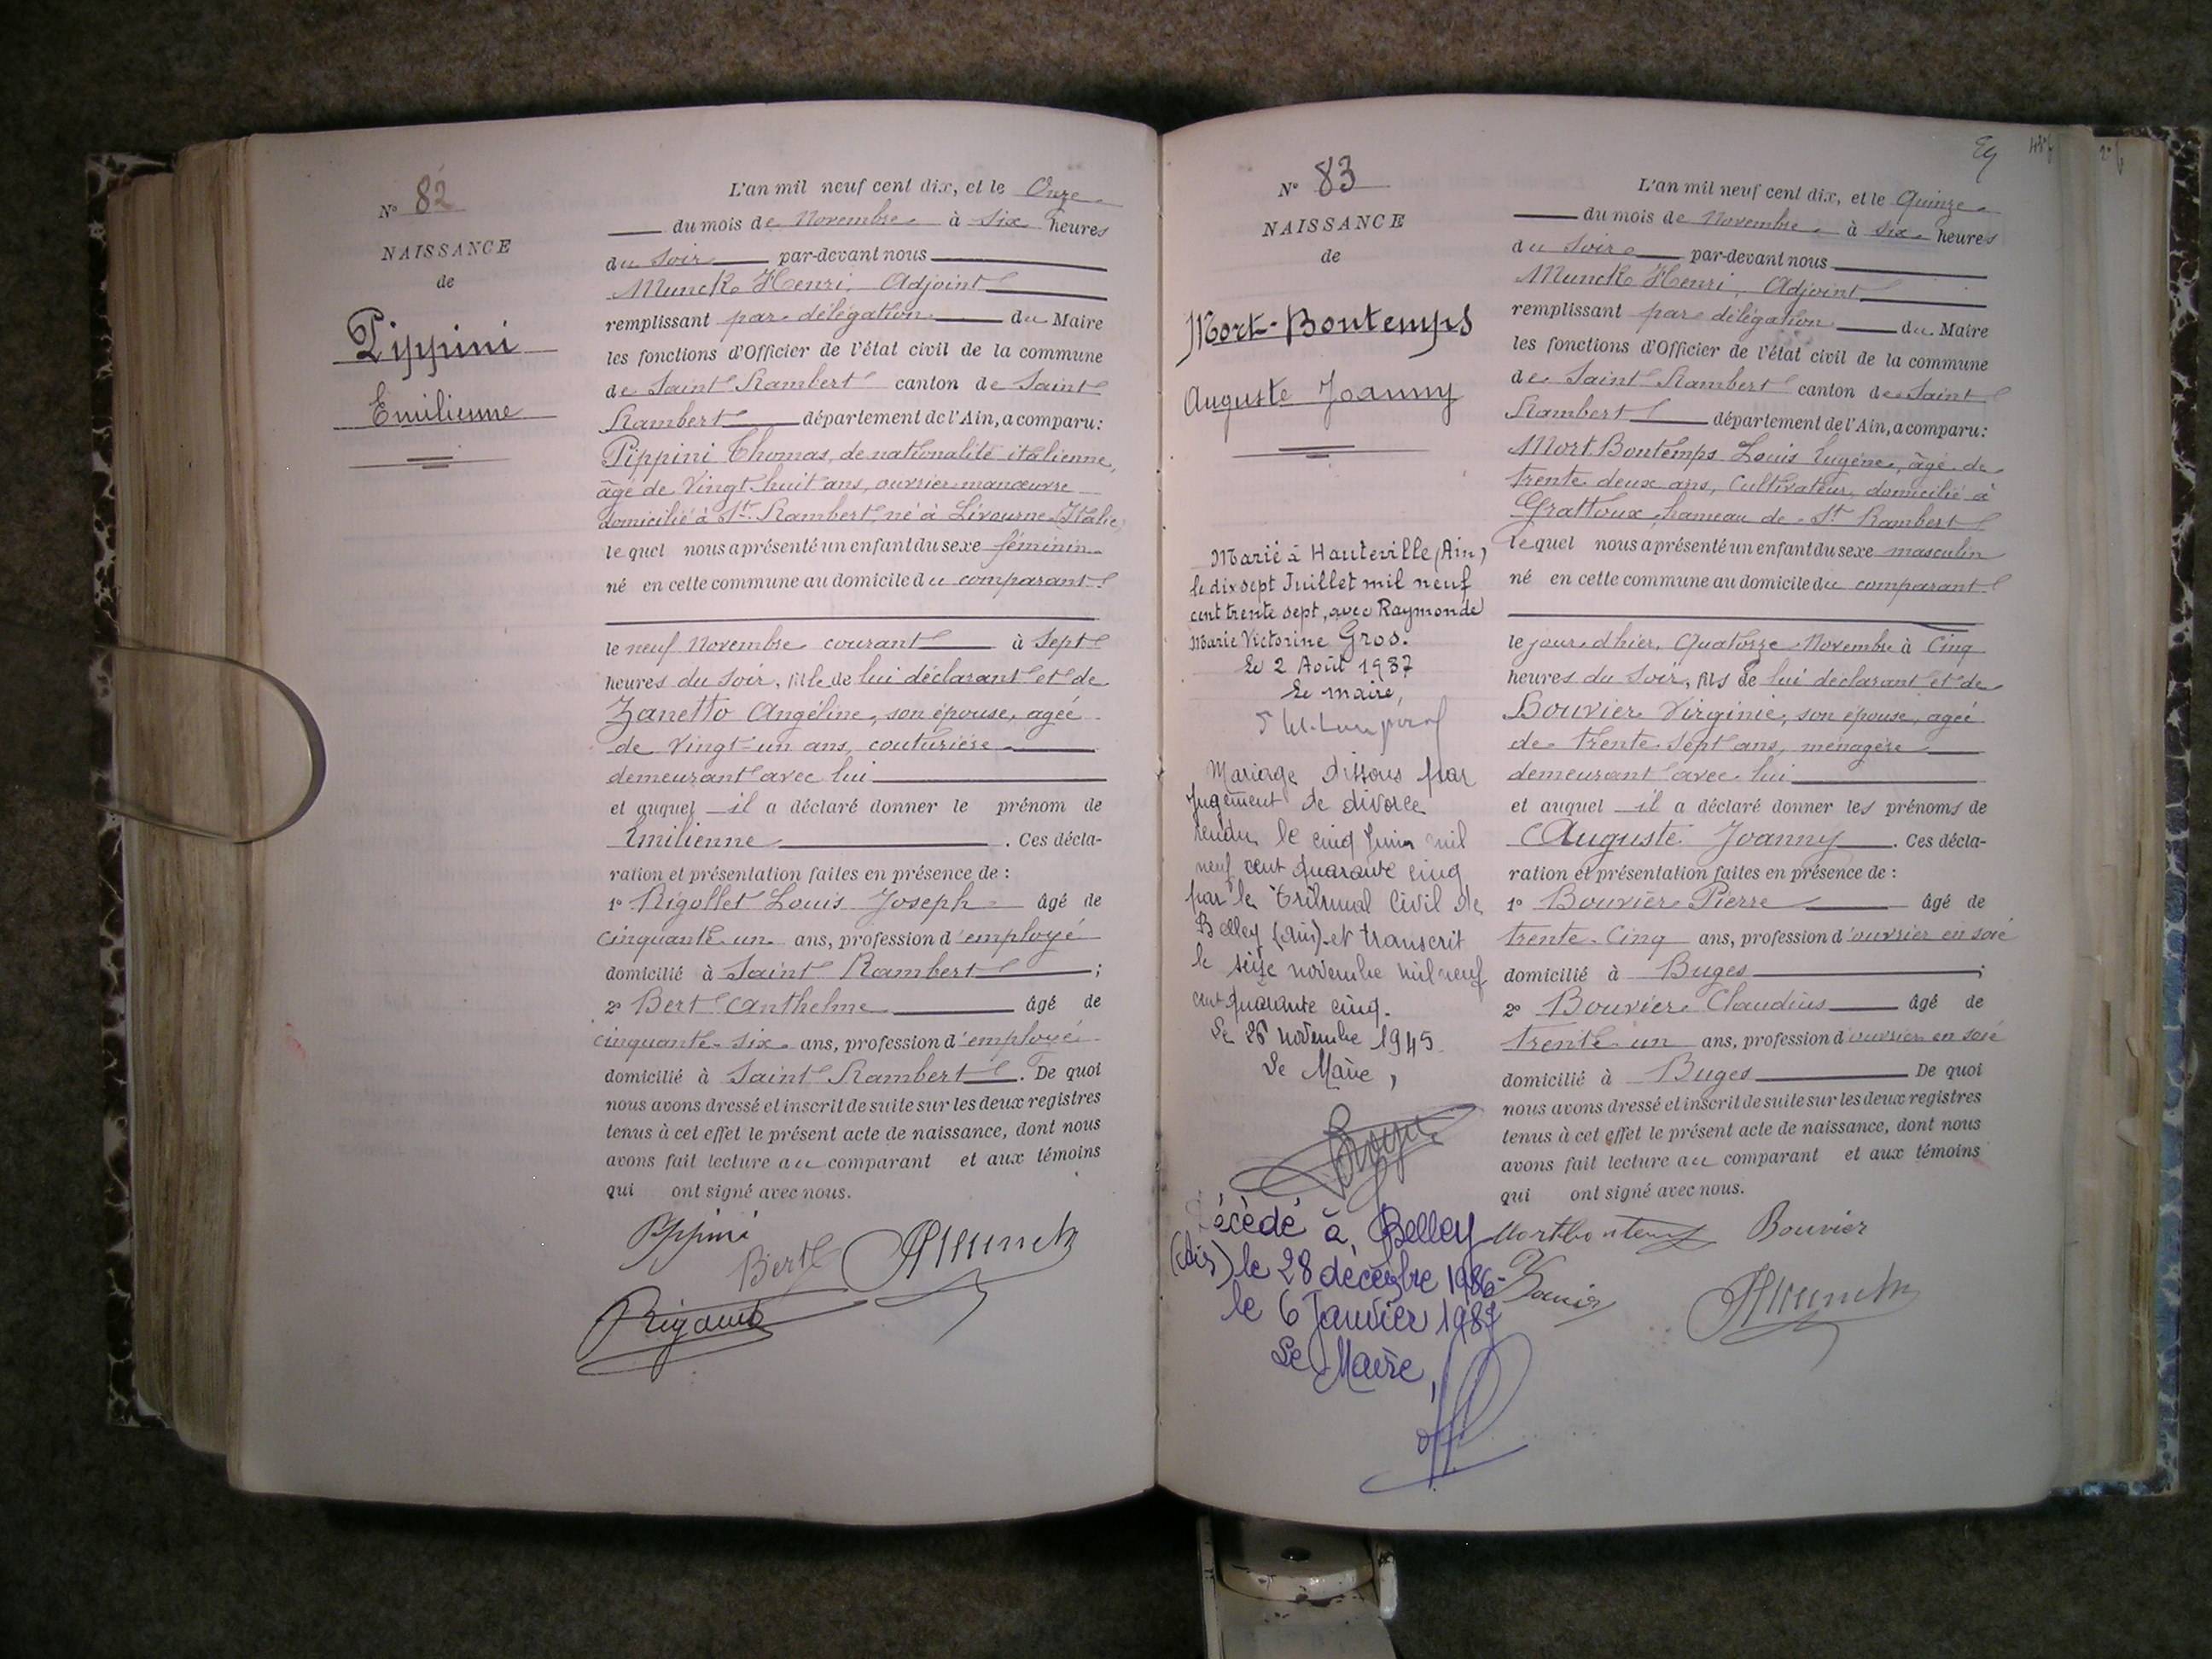 N° 82
NAISSANCE
de
Pippini
Emilienne
L'an mil neuf cent dix, et le Onze
du mois de Novembre à six heures
du soir par-devant nous
Munck Henri, Adjoint
remplissant par délégation du Maire
les fonctions d'Officier de l'état civil de la commune
de Saint Rambert canton de Saint
Rambert département de l'Ain, a comparu:
Pippini Thomas, de nationalité italienne,
âgé de Vingt huit ans, ouvrier manœuvre
domicilié à St. Rambert, né à Livourne (Italie)
lequel nous a présenté un enfant du sexe féminin
né en cette commune au domicile du comparant
le neuf Novembre courant à Sept
heures du Soir, fille de lui déclarant et de
Zanetto Angéline, son épouse, agée
de Vingt-un ans, couturière
demeurant avec lui
et auquel il a déclaré donner le prénom de
Emilienne. Ces décla-
ration et présentation faites en présence de :
1° Rigollet Louis Joseph âgé de
cinquante un ans, profession d'employé
domicilié à Saint Rambert ;
2° Bert Anthelme âgé de
cinquante-six ans, profession d'employé
domicilié à Saint Rambert. De quoi
nous avons dressé et inscrit de suite sur les deux registres
tenus à cet effet le présent acte de naissance, dont nous
avons fait lecture au comparant et aux témoins
qui ont signé avec nous.
Pippini
Bert
HMunck
N° 83
NAISSANCE
de
Mort-Bontemps
Auguste Joanny
Marié à Hauteville (Ain)
le dix sept Juillet mil neuf
cent trente sept, avec Raymonde
Marie Victorine Gros.
Le 2 Août 1937
Le maire,
Mariage dissous par
Jugement de divorce
rendu le cinq Juin mil
neuf cent quarante cinq
par le Tribunal Civil de
Belley (Ain) et transcrit
le seize novembre mil neuf
cent quarante cinq.
Le 26 novembre 1945
Le Maire,
Décédé à Belley
(Ain) le 28 décembre 1986
le 6 Janvier 1987
Le Maire,
L'an mil neuf cent dix, et le Quinze
du mois de Novembre à six heures
du Soir par-devant nous
Munck Henri, Adjoint
remplissant par délégation du Maire
les fonctions d'Officier de l'état civil de la commune
de Saint Rambert canton de Saint
Rambert département de l'Ain, a comparu:
Mort Bontemps Louis Eugène, âgé de
trente deux ans, Cultivateur, domicilié à
Grattoux, hameau de St Rambert
lequel nous a présenté un enfant du sexe masculin
né en cette commune au domicile du comparant
le jour d'hier, Quatorze Novembre à Cinq
heures du Soir, fils de lui déclarant et de
Bouvier Virginie, son épouse, agée
de trente-sept ans, ménagère
demeurant avec lui
et auquel il a déclaré donner les prénoms de
Auguste Joanny. Ces décla-
ration et présentation faites en présence de :
1° Bouvier Pierre âgé de
trente-Cinq ans, profession d'ouvrier en soie
domicilié à Buges ;
2° Bouvier Claudius âgé de
trente-un ans, profession d'ouvrier en soie
domicilié à Buges De quoi
nous avons dressé et inscrit de suite sur les deux registres
tenus à cet effet le présent acte de naissance, dont nous
avons fait lecture au comparant et aux témoins
qui ont signé avec nous.
Mortbontemps Bouvier
Bouvier HMunck